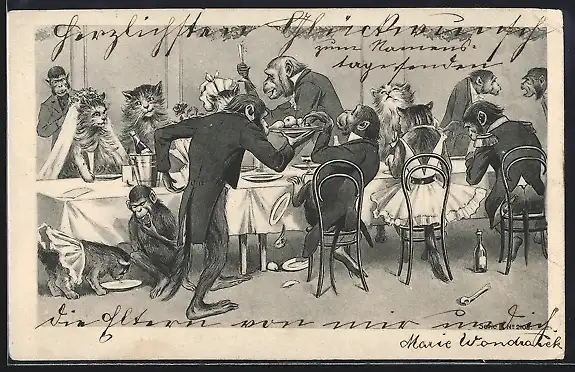 Herzlichsten Glückwunsch
zum Namens-
tage senden
die Eltern von mir und ich.
Serie
Marie Wondratsek